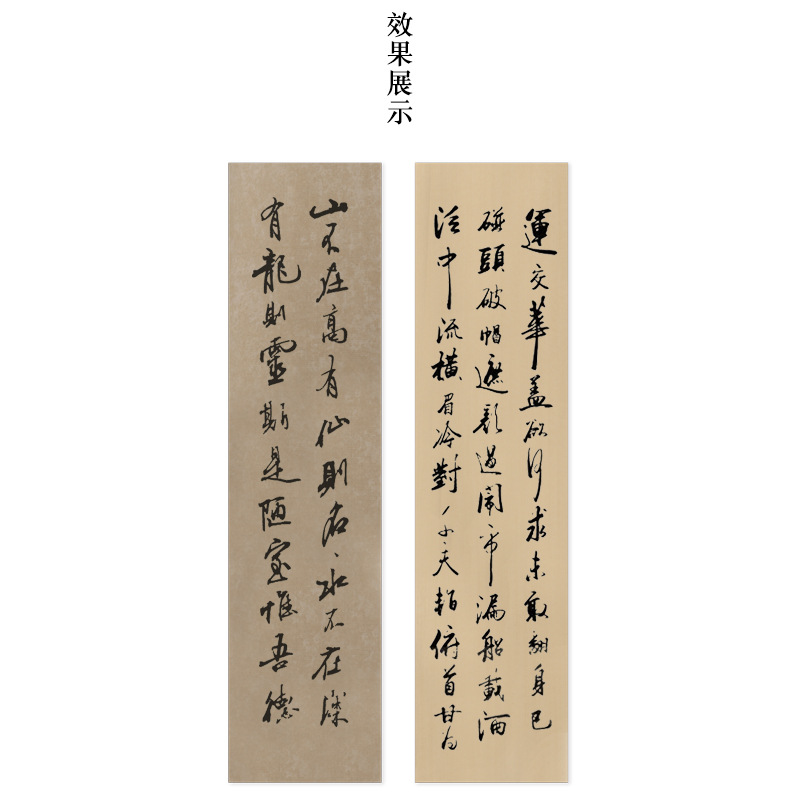 效果展示
運交華盖欲何求未敢翻身已
碰頭破帽遮颜過鬧市漏船載酒
泛中流横眉冷對千夫指俯首甘为
山不在高有仙則名水不在深
有龍則靈斯是陋室惟吾德